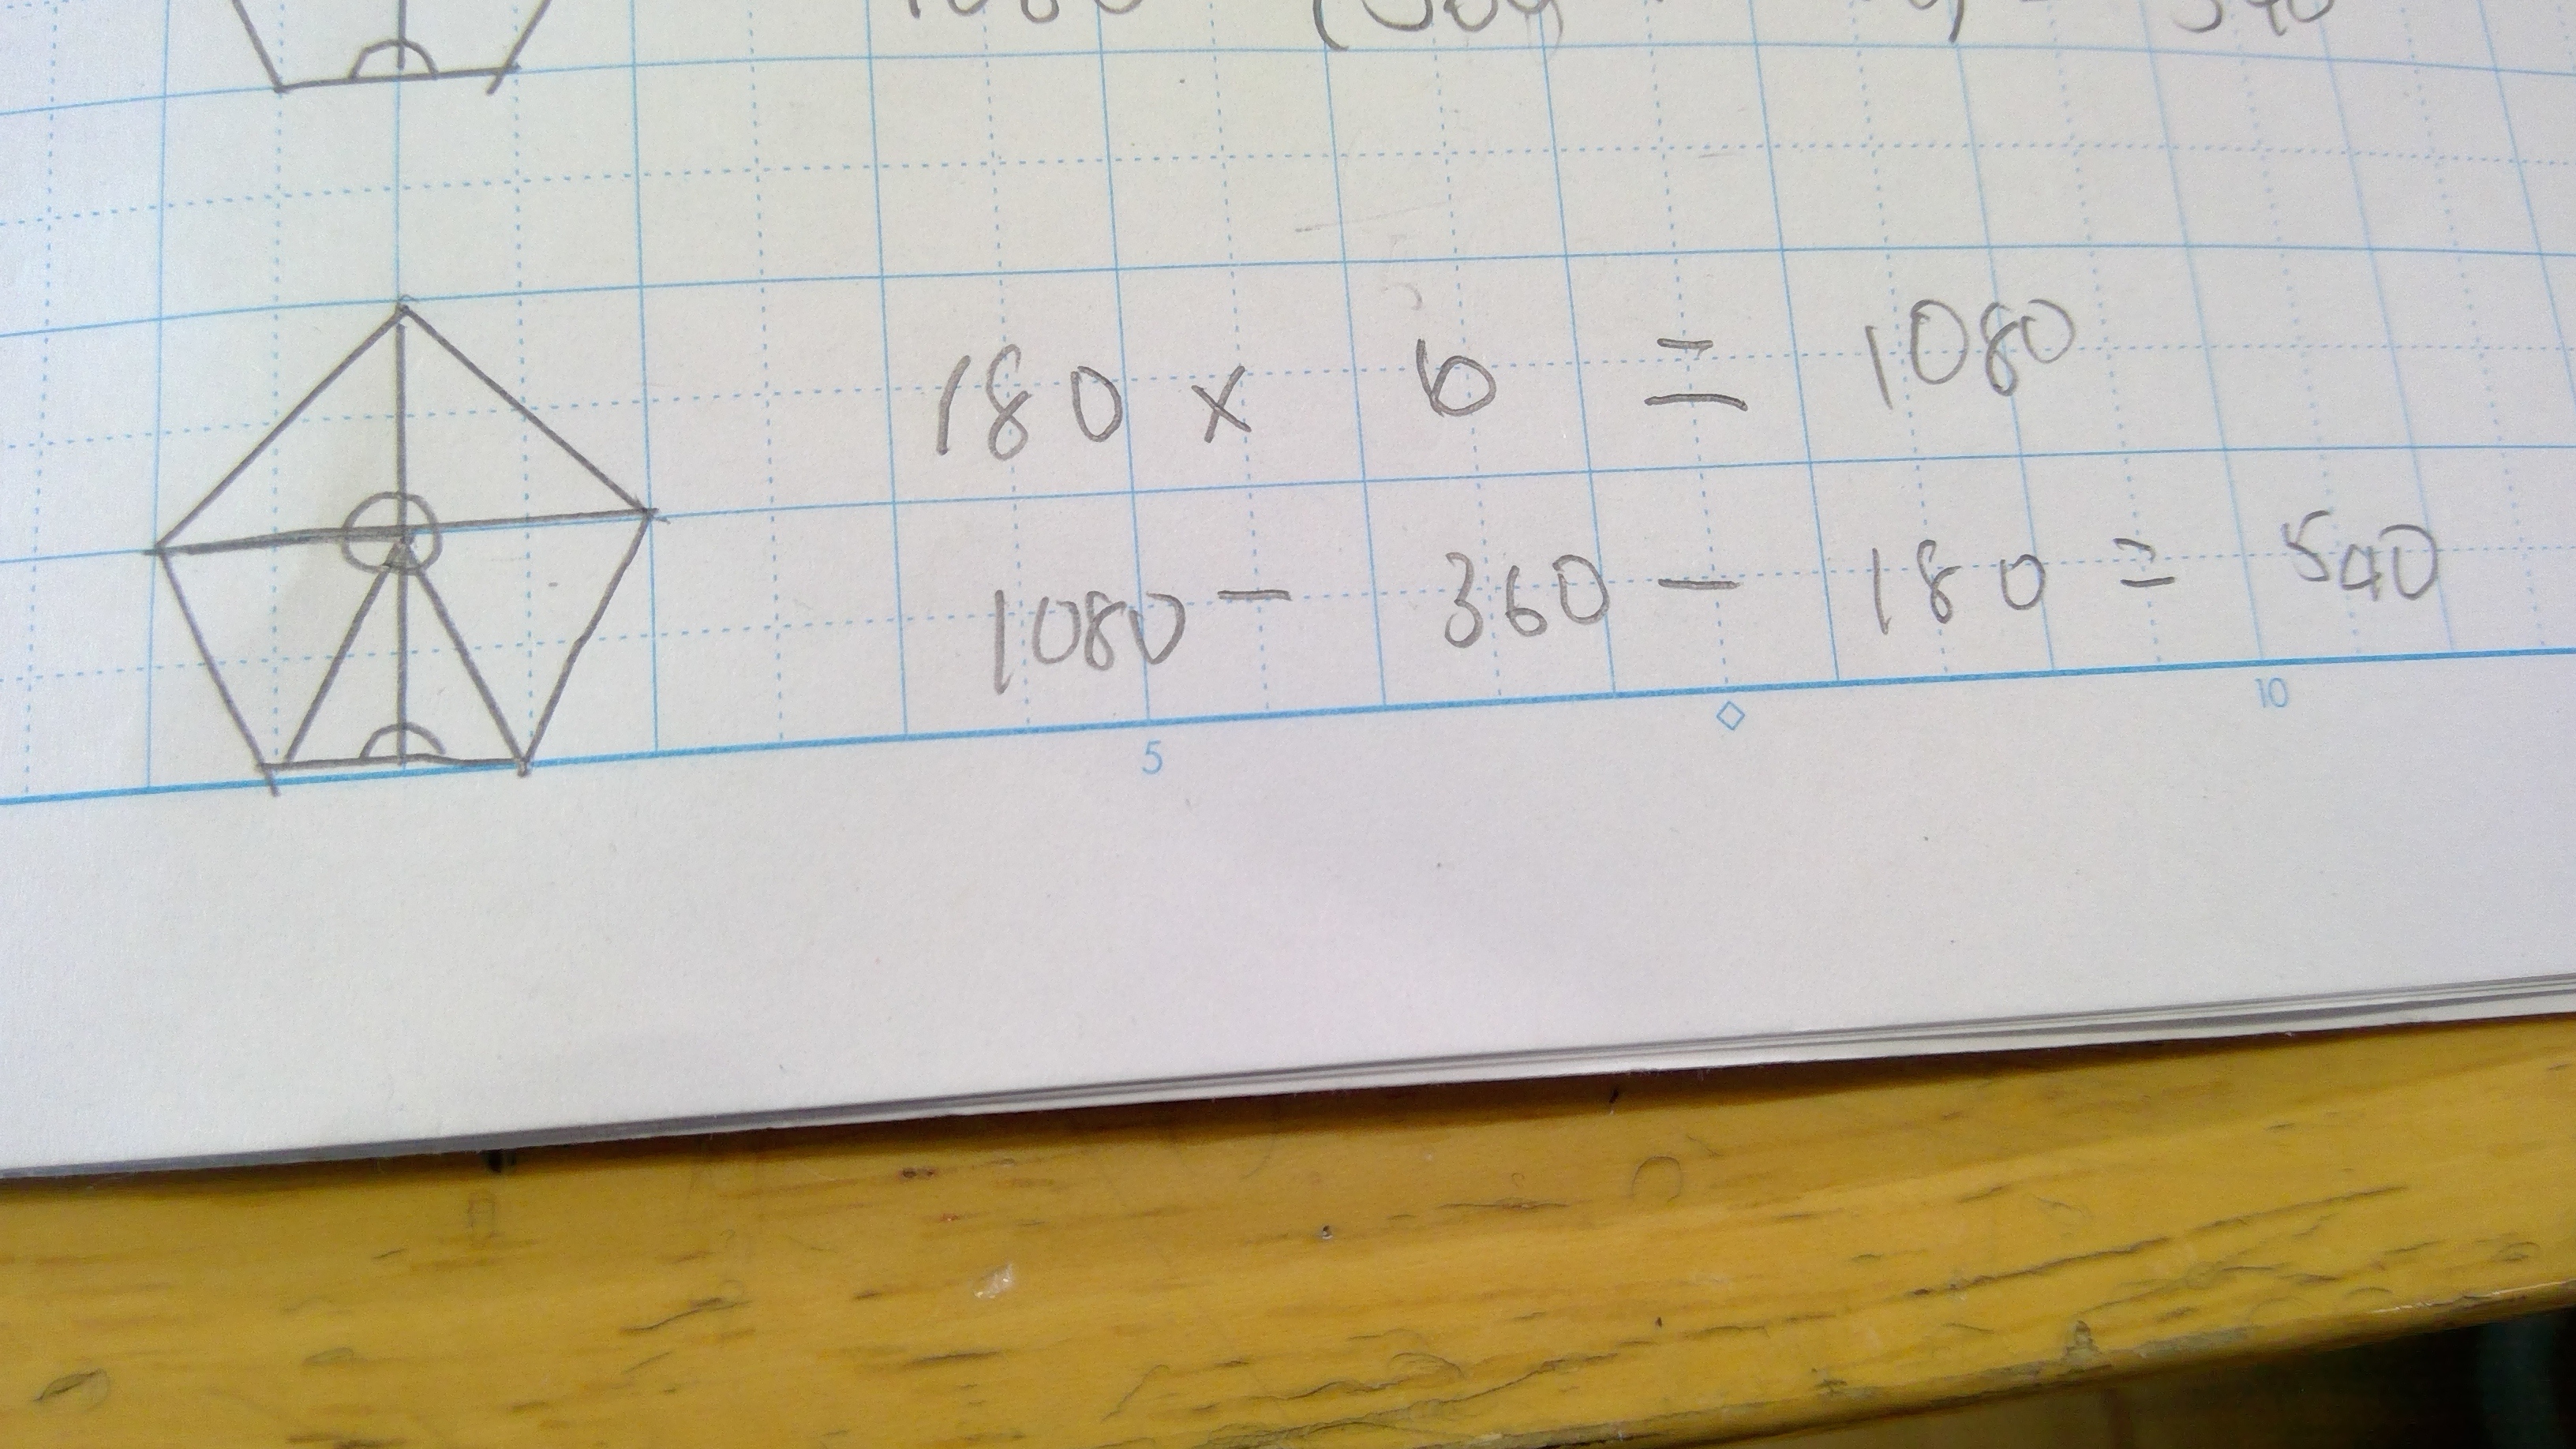 180 × 6 = 1080
1080 - 360 - 180 = 540
5 10